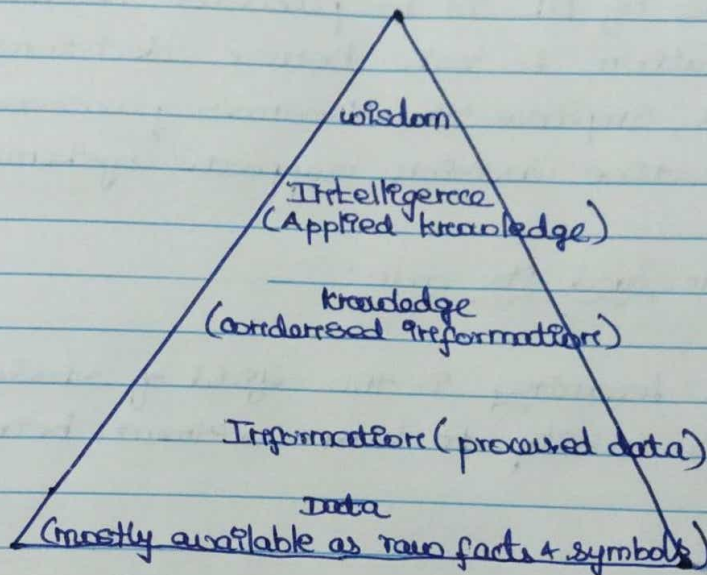 wisdom
Intelligence
(Applied knowledge)
knowledge
(condensed information)
Information (processed data)
Data
(mostly available as raw facts & symbols)